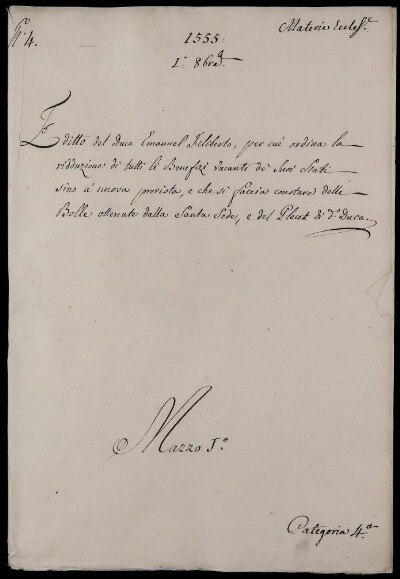 N.° 4.
Materie Eccles.e
1555.
1.° 8bre
Editto del Duca Emanuel Filiberto, per cui ordina la
ridduzione di tutti li Benefizi vacanti de' Suoi Stati
sino a' nuova provista, e che si faccia constare delle
Bolle ottenute dalla Santa Sede, e del Placet di d.° Duca
Mazzo 1.°
Categoria 4.a